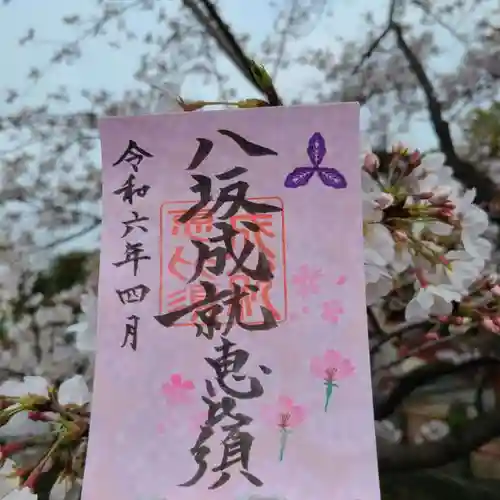 八坂成就恵比須
令和六年四月